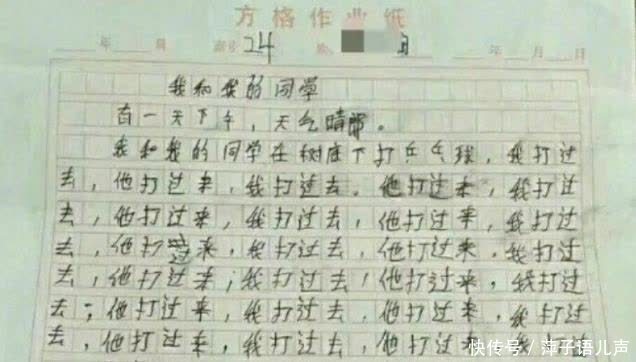 方格作业纸
年 月 索引24 年 月 日
我和我的同学
有一天下午，天气晴朗。
我和我的同学在树底下打乒乓球，我打过
去，他打过来，我打过去。他打过来，我打过
去，他打过来，我打过去，他打过来，我打过
去，他打过来，我打过去，他打过来，我打过
去，他打过来，我打过去，他打过来，我打过
去，他打过来，我打过去，他打过来，我打过
去，他打过来，我打过去，他打过来，我打过
快传号／萍子语儿声